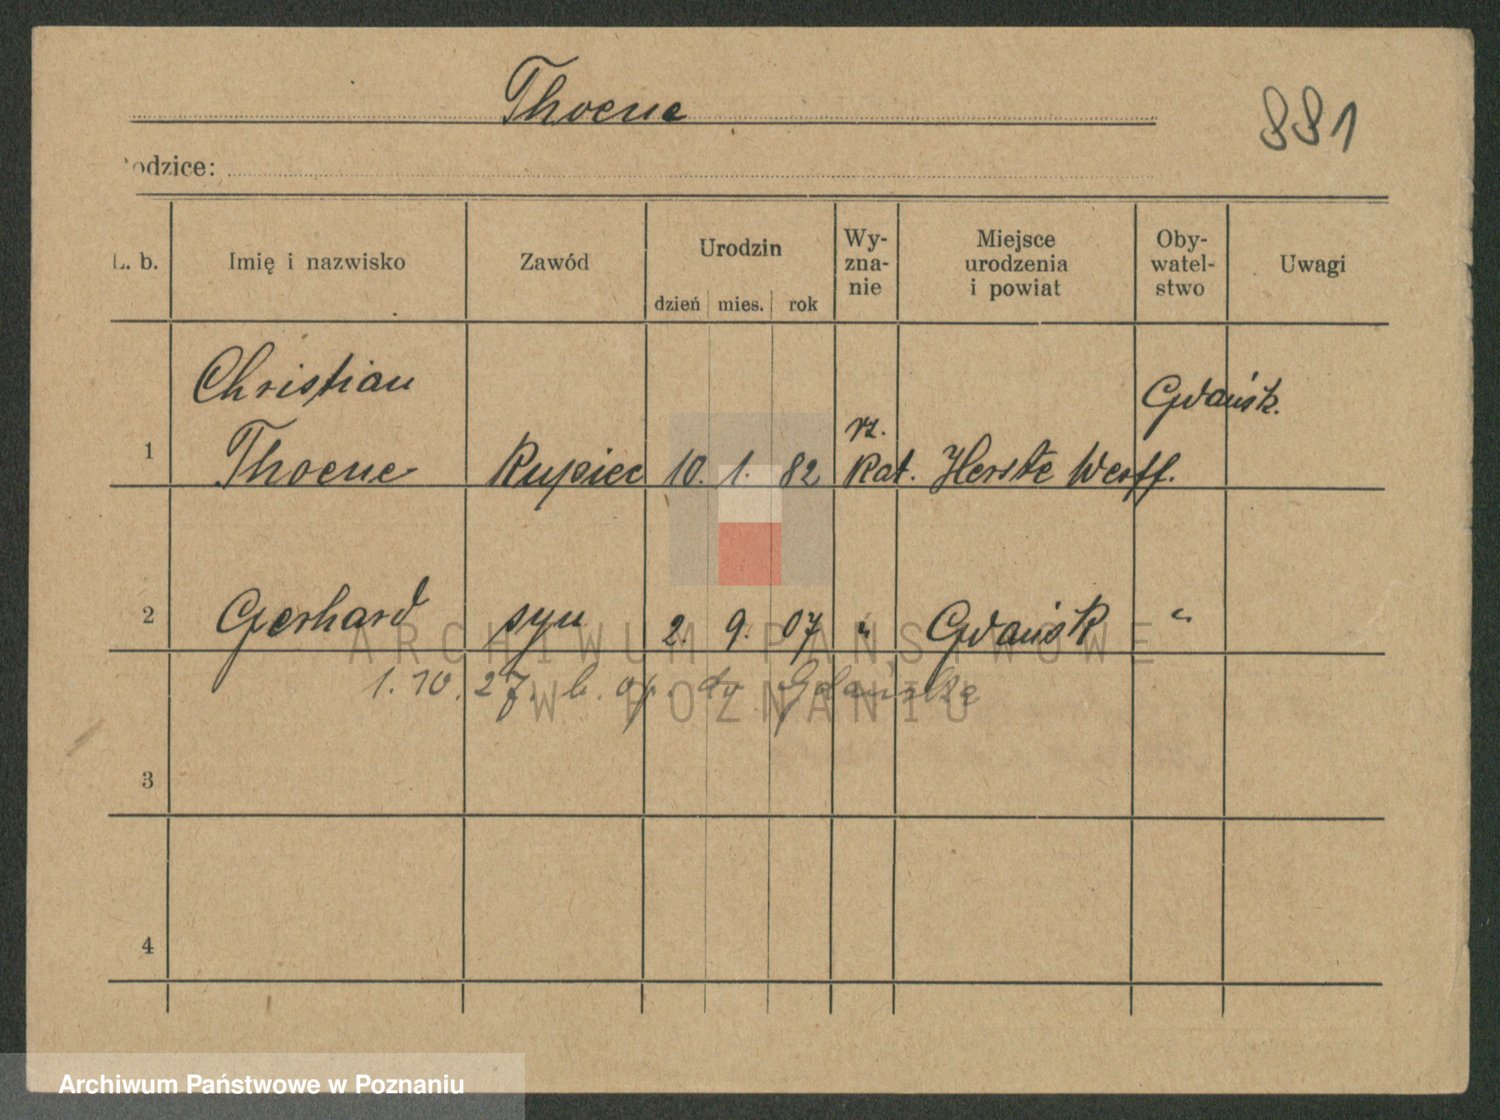 Thoene
881
odzice:
L. b.
Imię i nazwisko
Zawód
Urodzin
dzień mies. rok
Wy-
zna-
nie
Miejsce
urodzenia
i powiat
Oby-
watel-
stwo
Uwagi
Christian
Gdańsk.
rz.
1 Thoene Kupiec 10. 1. 82 Kat. Herste Werff.
2 Gerhard syn 2. 9. 07 " Gdańsk "
1. 10. 27. b. op. do Gdańska
3
4
ARCHIWUM PAŃSTWOWE
W POZNANIU
Archiwum Państwowe w Poznaniu